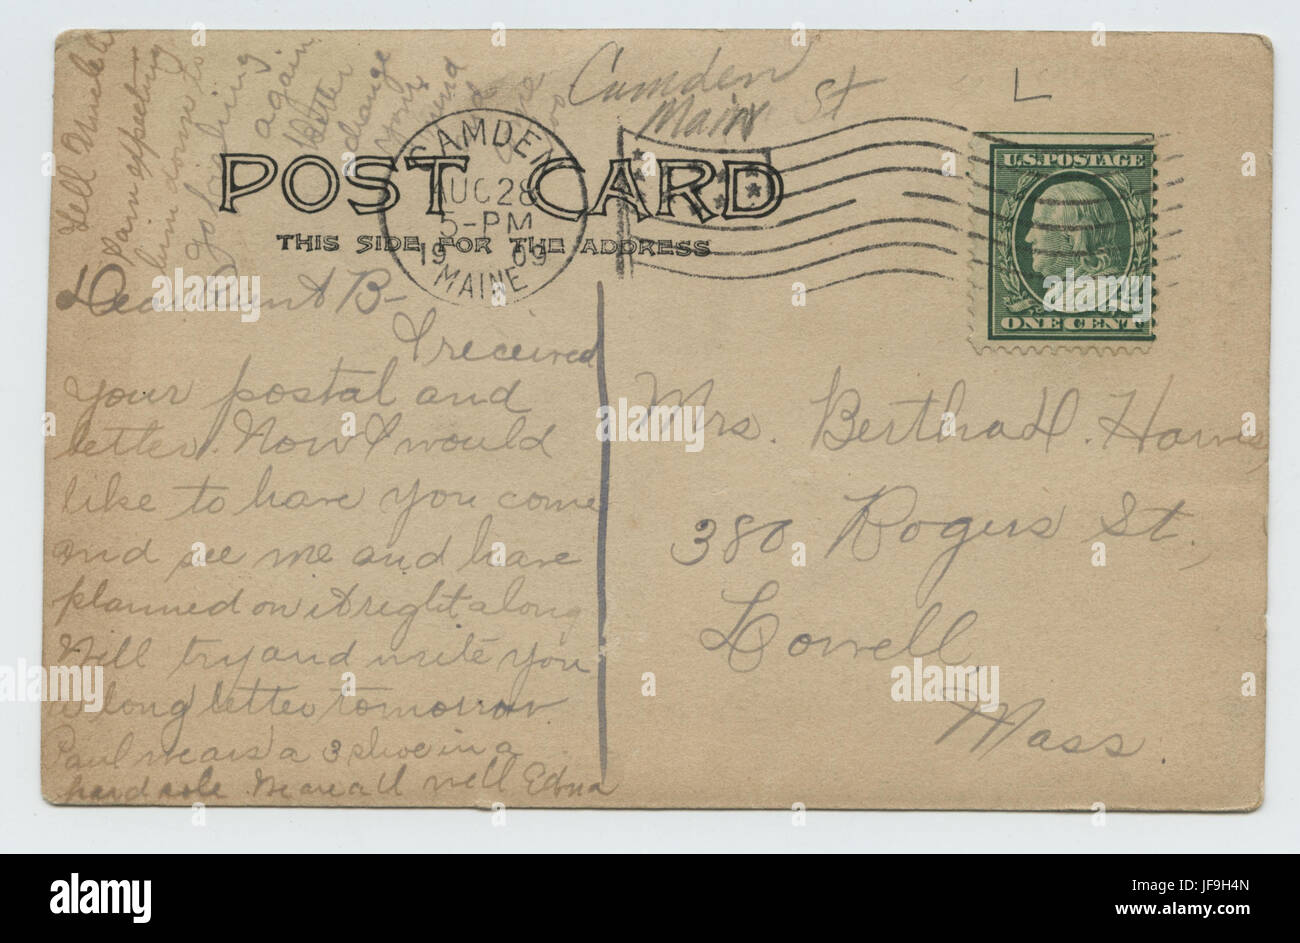 Tell Uncle
I am expecting
him down to
go fishing
again
Better
change
your
mind
Camden
Maine St
L
POST CARD
THIS SIDE FOR THE ADDRESS
CAMDEN
AUG 28
5-PM
19 09
MAINE
U.S. POSTAGE
ONE CENT
Dear Aunt B-
I received
your postal and
letter. Now I would
like to have you come
and see me and have
planned on it right along
Will try and write you
a long letter tomorrow
Paul wears a 3 shoe in a
hard sole. We are all well Edna
Mrs. Bertha H. Hawes,
380 Rogers St.,
Lowell,
Mass.
alamy
alamy stock photo
JF9H4N
www.alamy.com